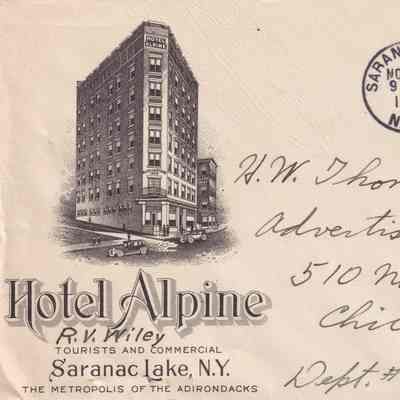 HOTEL
ALPINE
Hotel Alpine
R.V. Wiley
TOURISTS AND COMMERCIAL
Saranac Lake, N.Y.
THE METROPOLIS OF THE ADIRONDACKS
SARAN
NO
9
1
N
H. W. Thom
Advertis
510 N
Chic
Dept. #